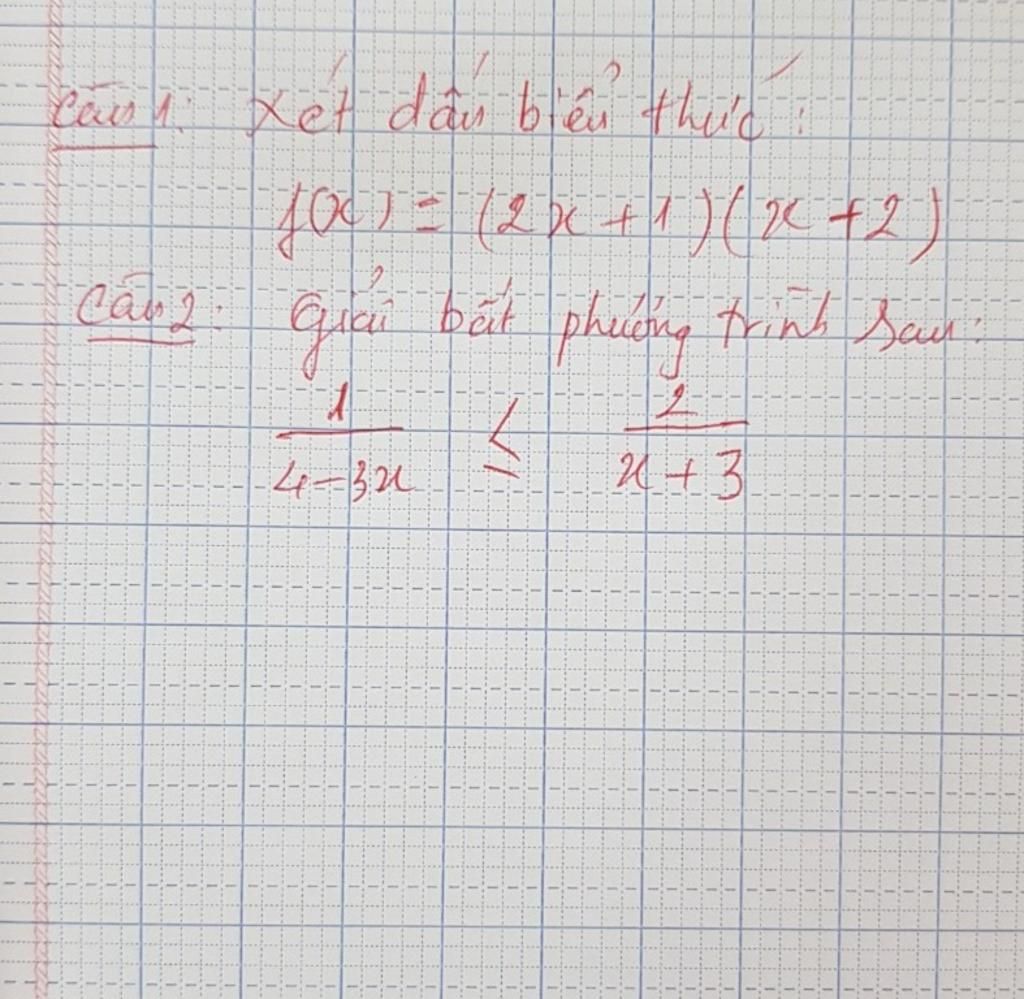 Câu 1: Xét dấu biểu thức:
f(x) = (2x+1)(x+2)
Câu 2: Giải bất phương trình sau:
1/(4-3x) ≤ 2/(x+3)